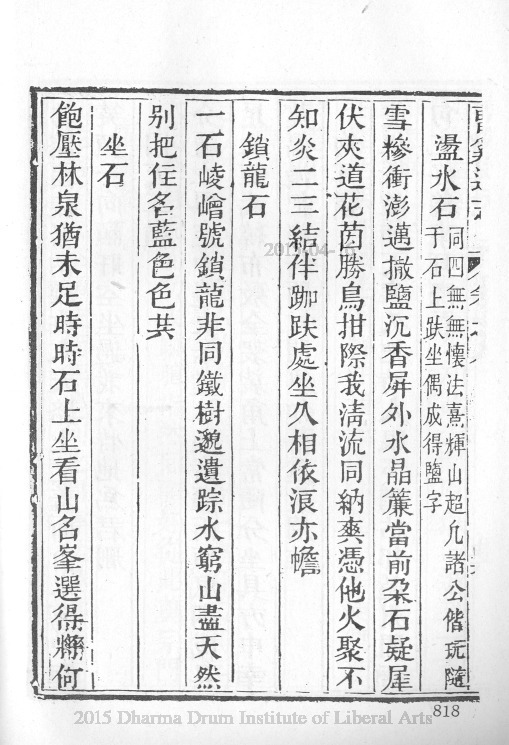 盪水石同四無無懷法熹輝山超凢諸公偕玩隨
于石上趺坐偶成得鹽字
雪糝衝澎邁撒鹽沉香屏外水晶簾當前朶石疑犀
伏夾道花茵勝鳥拑際我淸流同納爽憑他火聚不
知炎二三結伴跏趺處坐久相依浪亦幨
鎖龍石
一石崚嶒號鎖龍非同鐵樹邈遺踪水窮山盡天然
别把住名藍色色共
坐石
飽壓林泉猶未足時時石上坐看山名峯選得將何
2015 Dharma Drum Institute of Liberal Arts
818